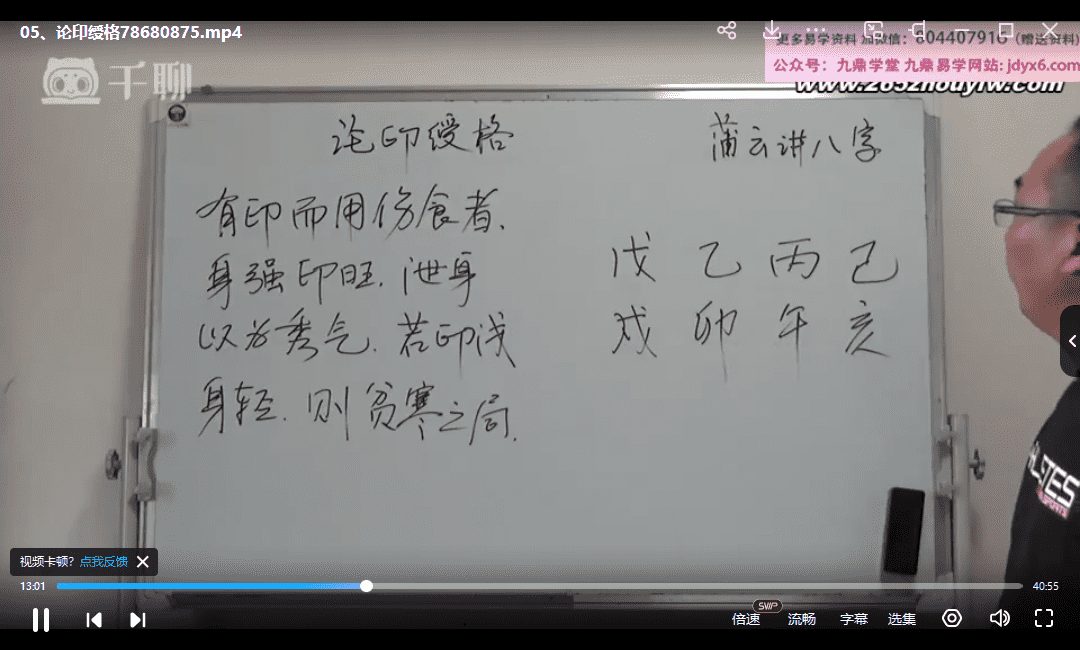 05、论印绶格78680875.mp4
更多易学资料 加微信：804407916（赠送资料）
公众号：九鼎学堂 九鼎易学网站：jdyx6.com
千聊
论印绶格
蒲云讲八字
有印而用伤食者.
身强印旺.泄身
以为秀气.若印浅
身轻.则贫寒之局.
戊 乙 丙 己
戌 卯 午 亥
视频卡顿？点我反馈
13:01
40:55
倍速
SVIP
流畅
字幕
选集